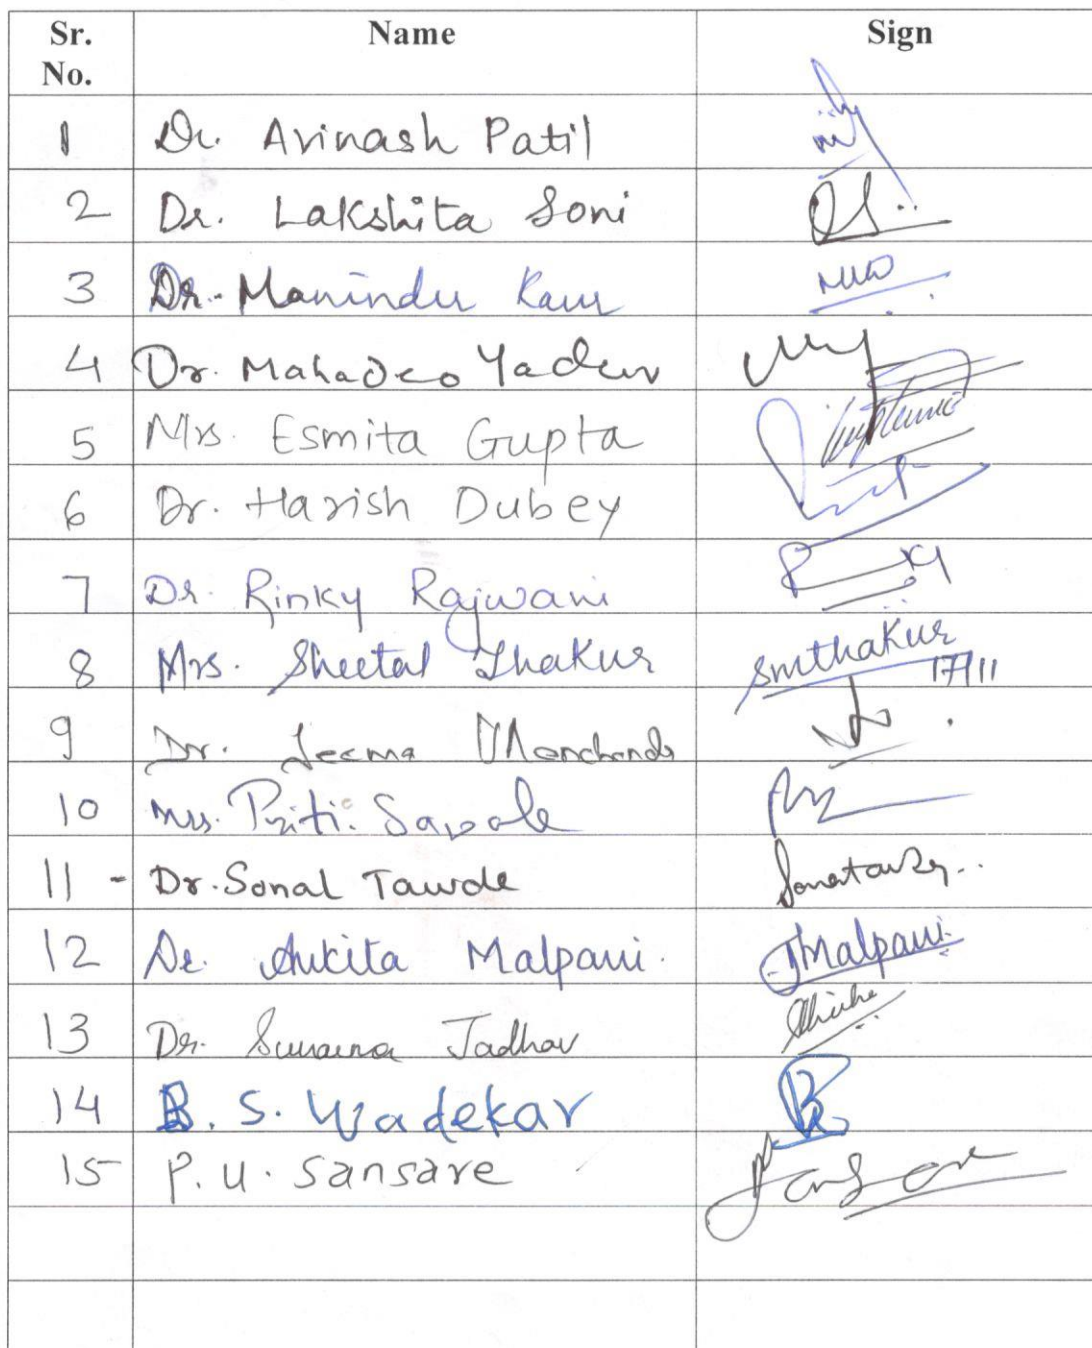 Sr. No. Name Sign
1 Dr. Avinash Patil
2 Dr. Lakshita Soni
3 Dr. Maninder Kaur
4 Dr. Mahadeo Yadav
5 Mrs. Esmita Gupta
6 Dr. Harish Dubey
7 Dr. Rinky Rajwani
8 Mrs. Sheetal Thakur smthakur 17/11
9 Dr. Seema Manchanda
10 Mrs. Priti Savale
11 - Dr. Sonal Tawde
12 Dr. Ankita Malpani. Malpani
13 Dr. Sunaina Jadhav
14 B. S. Wadekar
15 P. U. Sansare